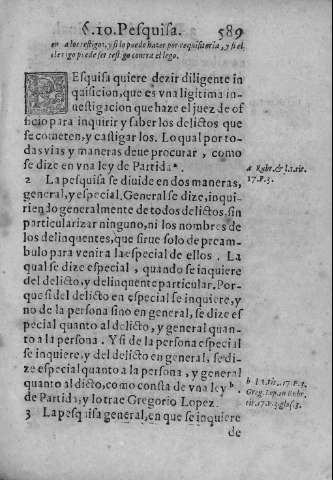 §.10. Pesquisa. 589
en a los testigos, y si lo puede hazer por requisitoria, y si el
clerigo puede ser testigo contra el lego.
PEsquisa quiere dezir diligente in
quisicion, que es vna ligitima in-
uestigacion que haze el juez de of
ficio para inquirir y saber los delictos que
se cometen, y castigar los. Lo qual por to-
das vias y maneras deue procurar, como
se dize en vna ley de Partida a.
a Rubr. & l. 1. tit.
17. P. 3.
2 La pesquisa se diuide en dos maneras,
general, y especial. General se dize, inqui-
riendo generalmente de todos delictos, sin
particularizar ninguno, ni los nombres de
los delinquentes, que sirue solo de pream-
bulo para venir a la especial de ellos. La
qual se dize especial, quando se inquiere
del delicto, y delinquente particular. Por-
que si del delicto en especial se inquiere, y
no de la persona sino en general, se dize es
pecial quanto al delicto, y general quan-
to a la persona. Y si de la persona especial
se inquiere, y del delicto en general, se di-
ze especial quanto a la persona, y general
quanto al dicto, como consta de vna ley b.
de Partida, y lo trae Gregorio Lopez.
b l. 1. tit. 17. P. 3.
Greg. Lop. in Rubr.
tit. 17. P. 3. glos.
3 La pesquisa general, en que se inquiere
de